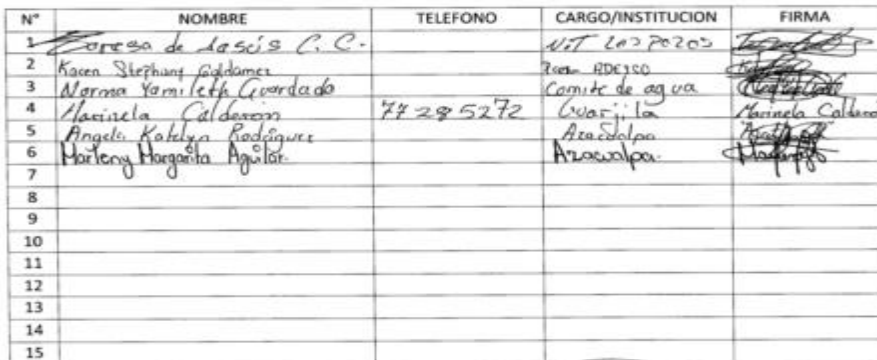 N° NOMBRE TELEFONO CARGO/INSTITUCION FIRMA
1 Teresa de Jesús C. C.
2 Karen Stephany Galdamez ADESCO
3 Norma Yamileth Guardado Comite de agua
4 Marinela Calderon 77285272 Guarjila Marinela Calderon
5 Angela Katelyn Rodriguez Azacualpa
6 Marleny Margarita Aguilar. Azacualpa.
7
8
9
10
11
12
13
14
15